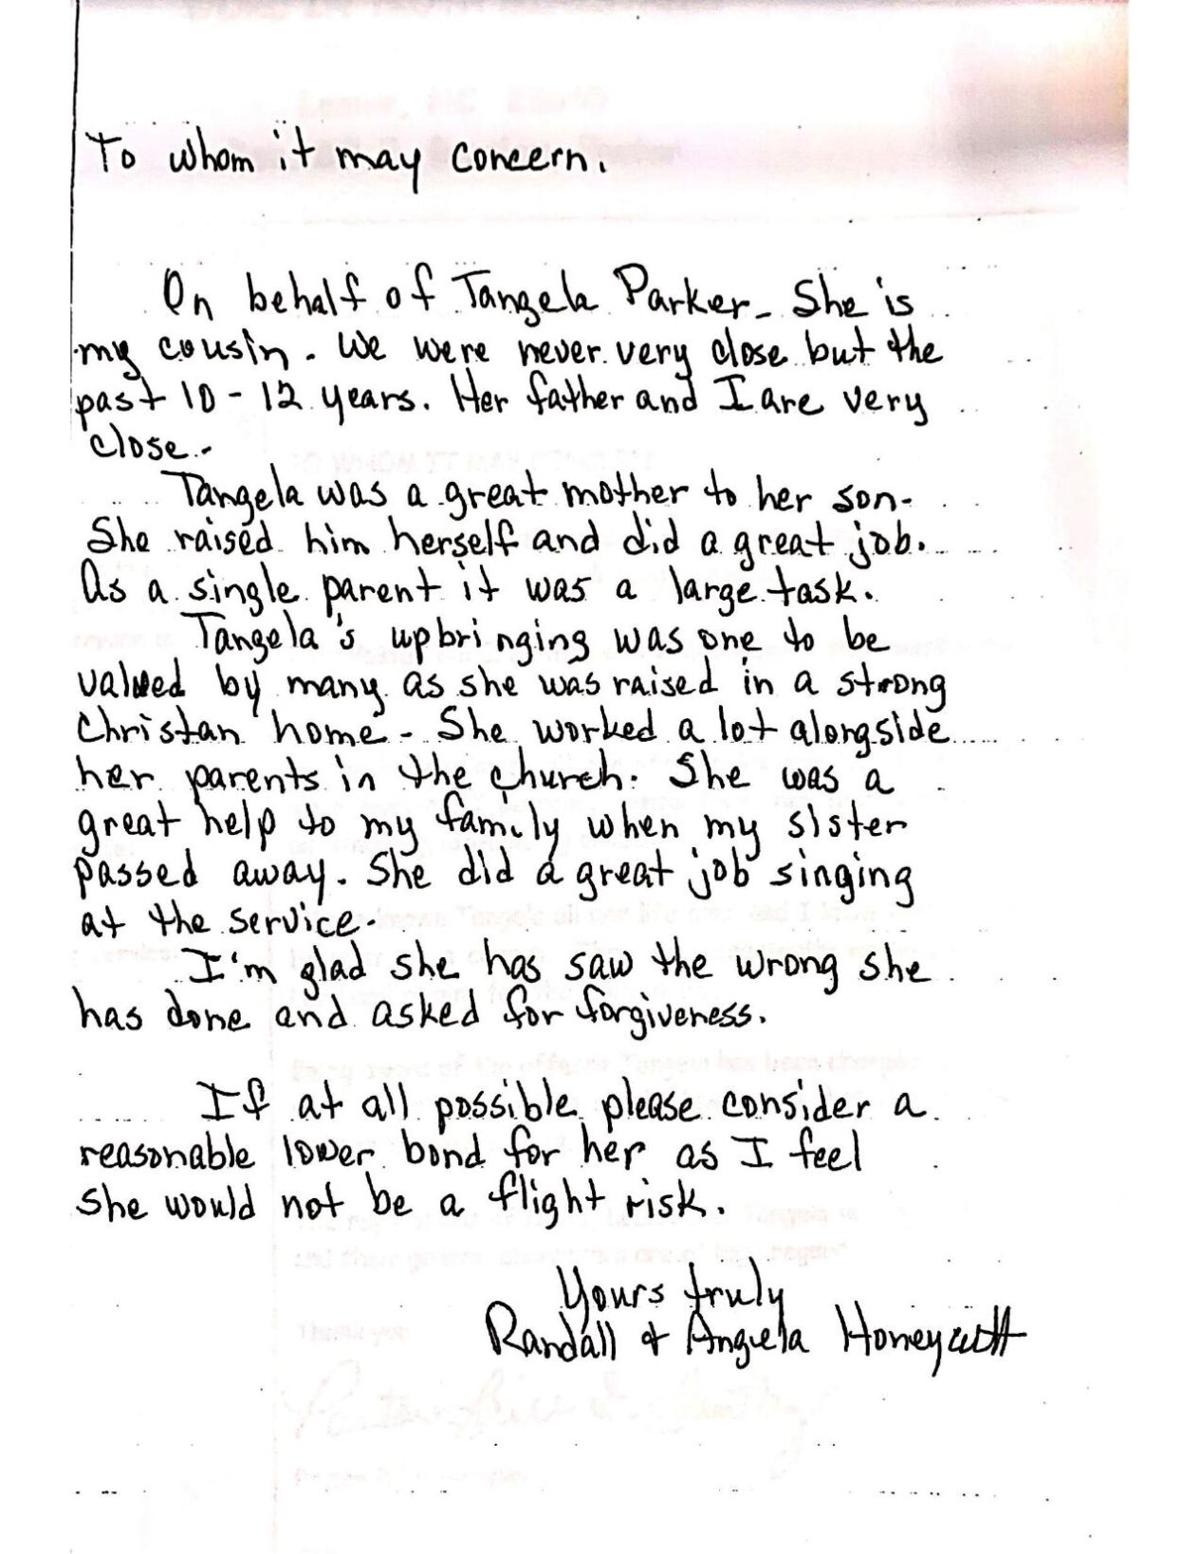 To whom it may concern.
On behalf of Tangela Parker. She is
my cousin. We were never very close but the
past 10-12 years. Her father and I are very
close.
Tangela was a great mother to her son.
She raised him herself and did a great job.
As a single parent it was a large task.
Tangela's upbringing was one to be
valued by many as she was raised in a strong
Christan home. She worked a lot alongside
her parents in the church. She was a
great help to my family when my sister
passed away. She did a great job singing
at the service.
I'm glad she has saw the wrong she
has done and asked for forgiveness.
If at all possible please consider a
reasonable lower bond for her as I feel
she would not be a flight risk.
Yours truly
Randall & Anguela Honeycutt